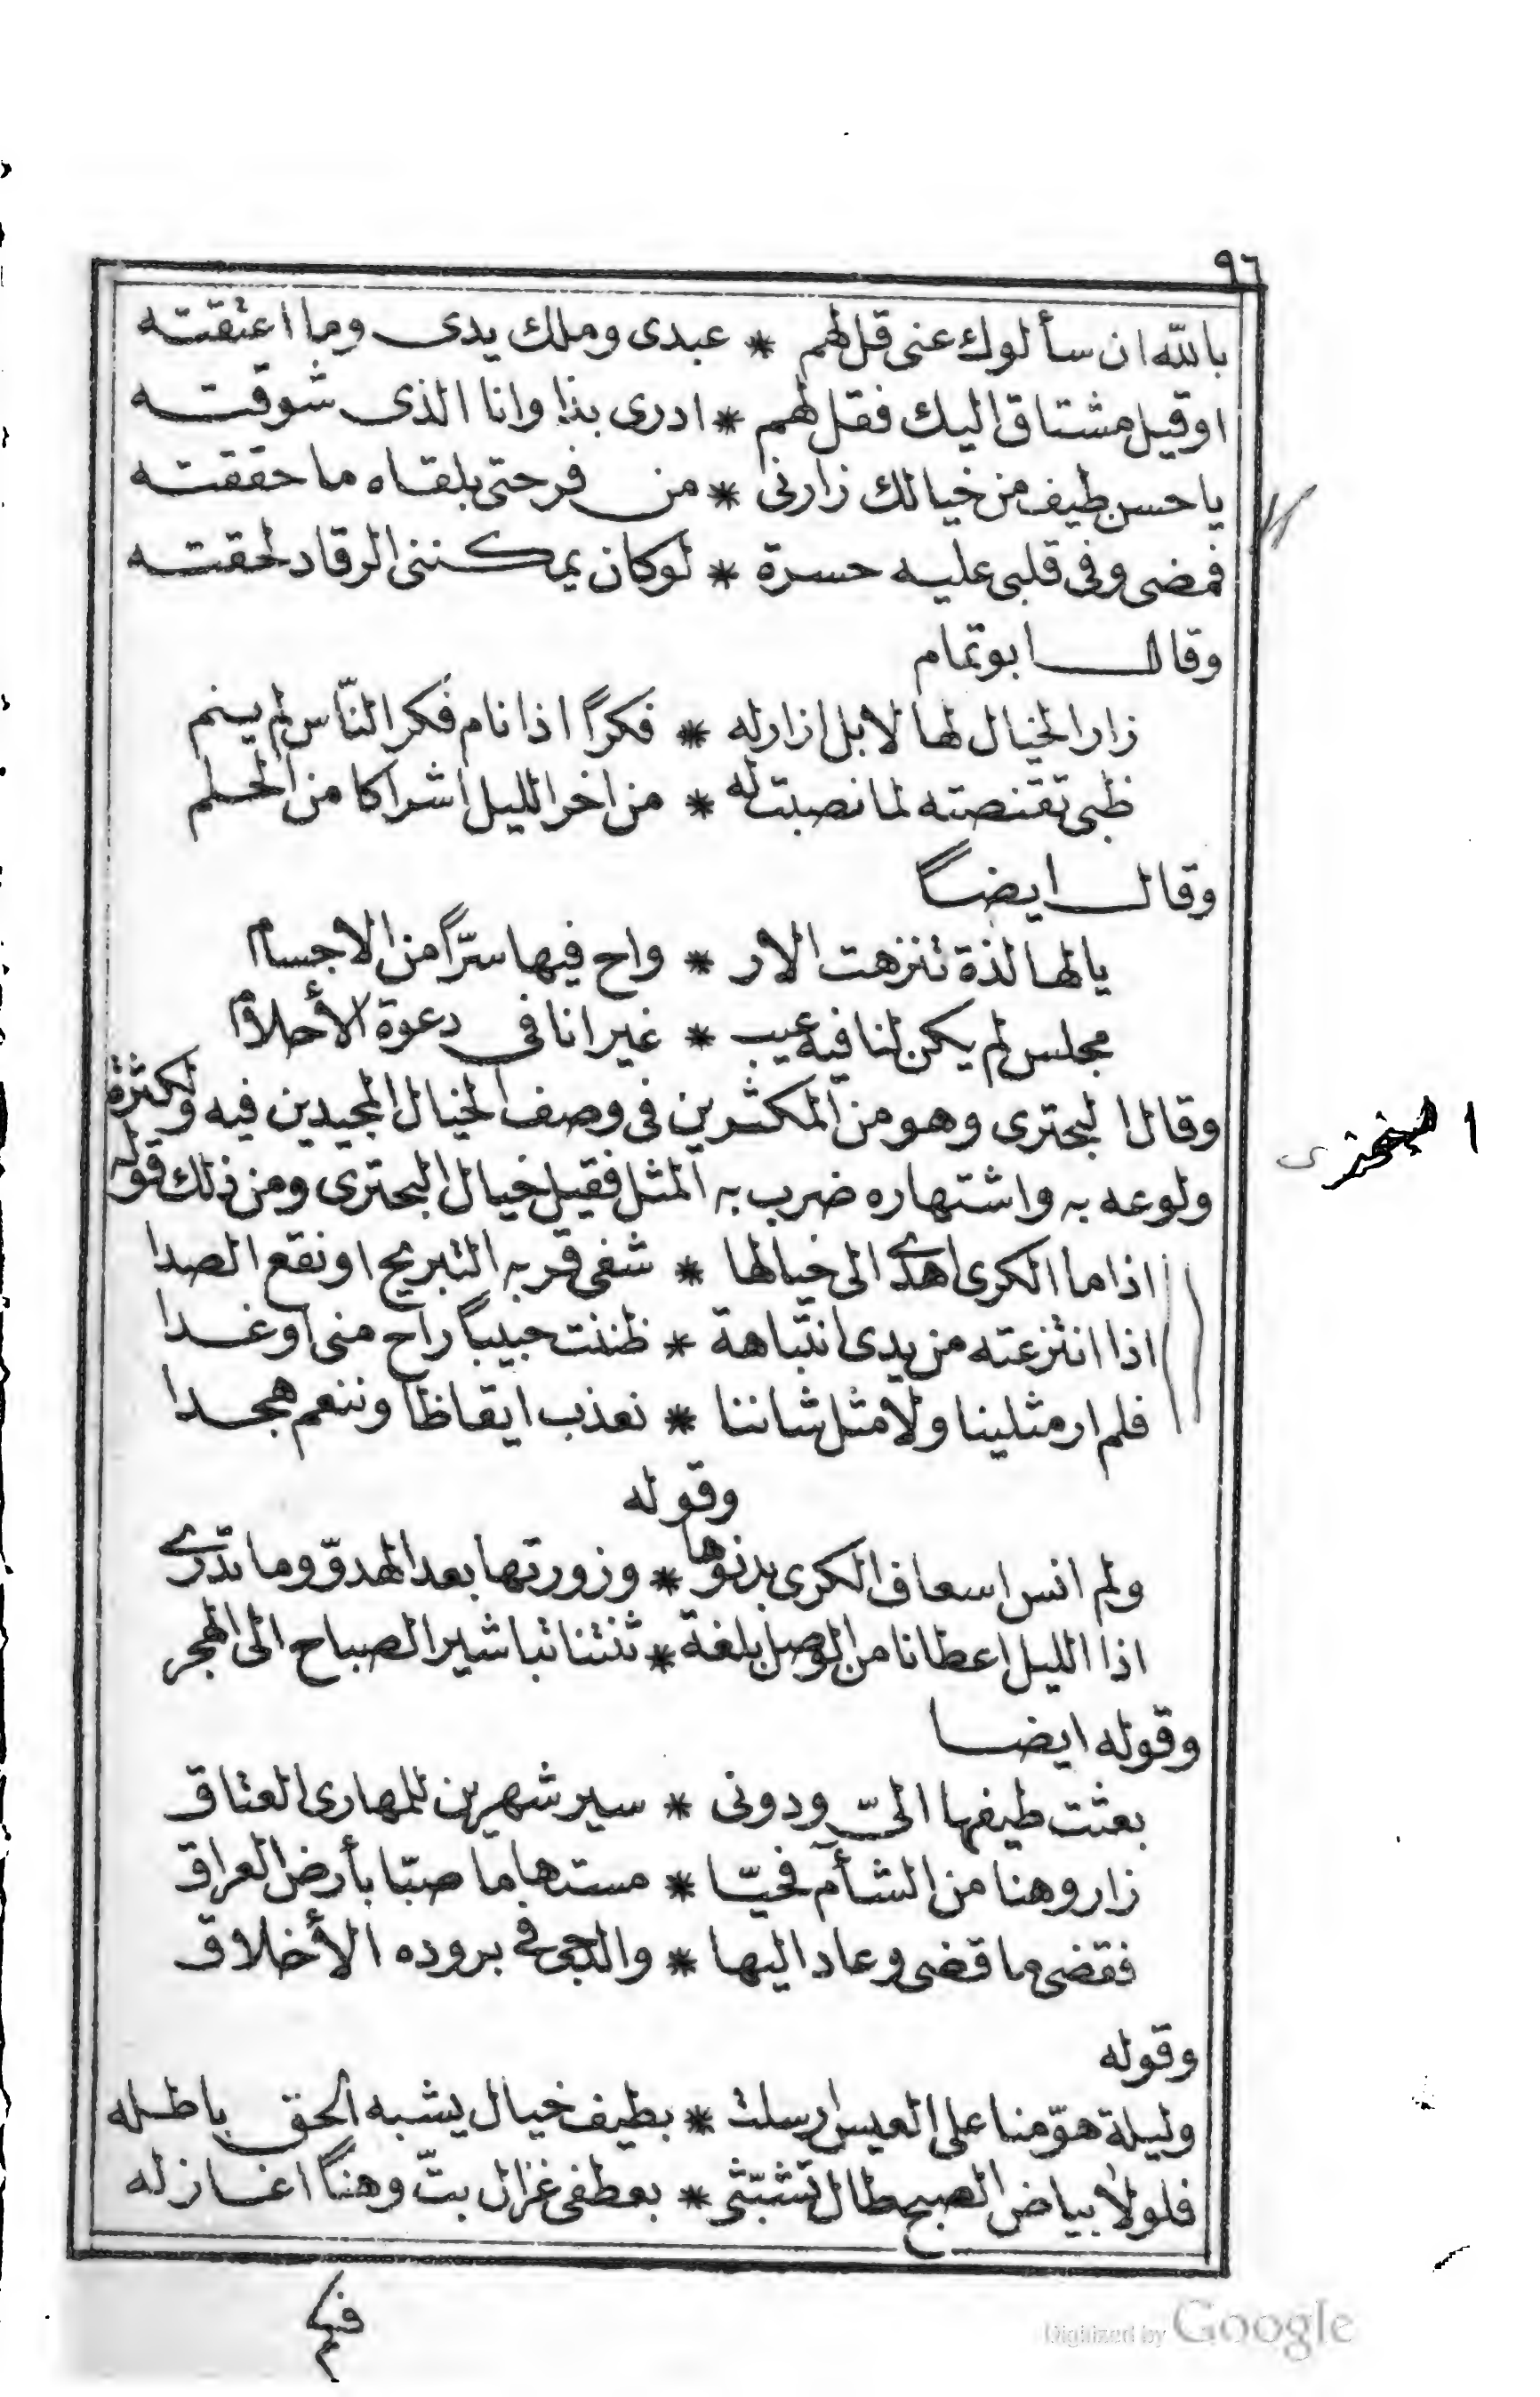 ٩٦
بالله ان سألوك عنى قل لهم * عبدى وملك يدى وما اعتقته
او قيل مشتاق اليك فقل لهم * ادرى بذا وانا الذى شوقته
يا حسن طيف من خيالك زارنى * من فرحتى بلقاه ما حققته
فمضى وفى قلبى عليه حسرة * لو كان يمكننى الرقاد لحقته
وقال ابو تمام
زار الخيال لها لا بل ازاركه * فكراً اذا نام فكر النّاس لم ينم
ظبى تقنصته لما نصبت له * من اخر الليل اشراكا من الحلم
وقال ايضاً
يا لها لذة تنزهت الار * واح فيها سرّاً من الاجسام
مجلس لم يكن لنا فيه عيب * غير انا فى دعوة الأحلام
وقال البحترى وهو من المكثرين فى وصف الخيال المجيدين فيه ولكثرة
ولوعه به واشتهاره ضرب به المثل فقيل خيال البحترى ومن ذلك قوله
البحترى
اذا ما الكرى اهدى الى خيالها * شفى قربه التبريح او نقع الصدا
اذا انتزعته من يدى انتباهة * ظننت حبيباً راح منى او غدا
فلم ار مثلينا ولا مثل شاننا * نعذب ايقاظا وننعم هجدا
وقوله
ولم انس اسعاف الكرى بدنوّها * وزورتها بعد الهدوّ وما تدرى
اذا الليل اعطانا من الوصل بلغة * ثنتنا تباشير الصباح الى الهجر
وقوله ايضا
بعثت طيفها الىّ ودونى * سير شهرين للمهارى العتاق
زار وهنا من الشأم فحيّا * مستهاما صبّا بأرض العراق
فقضى ما قضى وعاد اليها * والدجى فى بروده الأخلاق
وقوله
وليلة هوّمنا على العيس ارسلت * بطيف خيال يشبه الحق باطله
فلولا بياض الصبح طال تشبّثى * بعطفى غزال بتّ وهناً اغازله
فكم
Digitized by Google